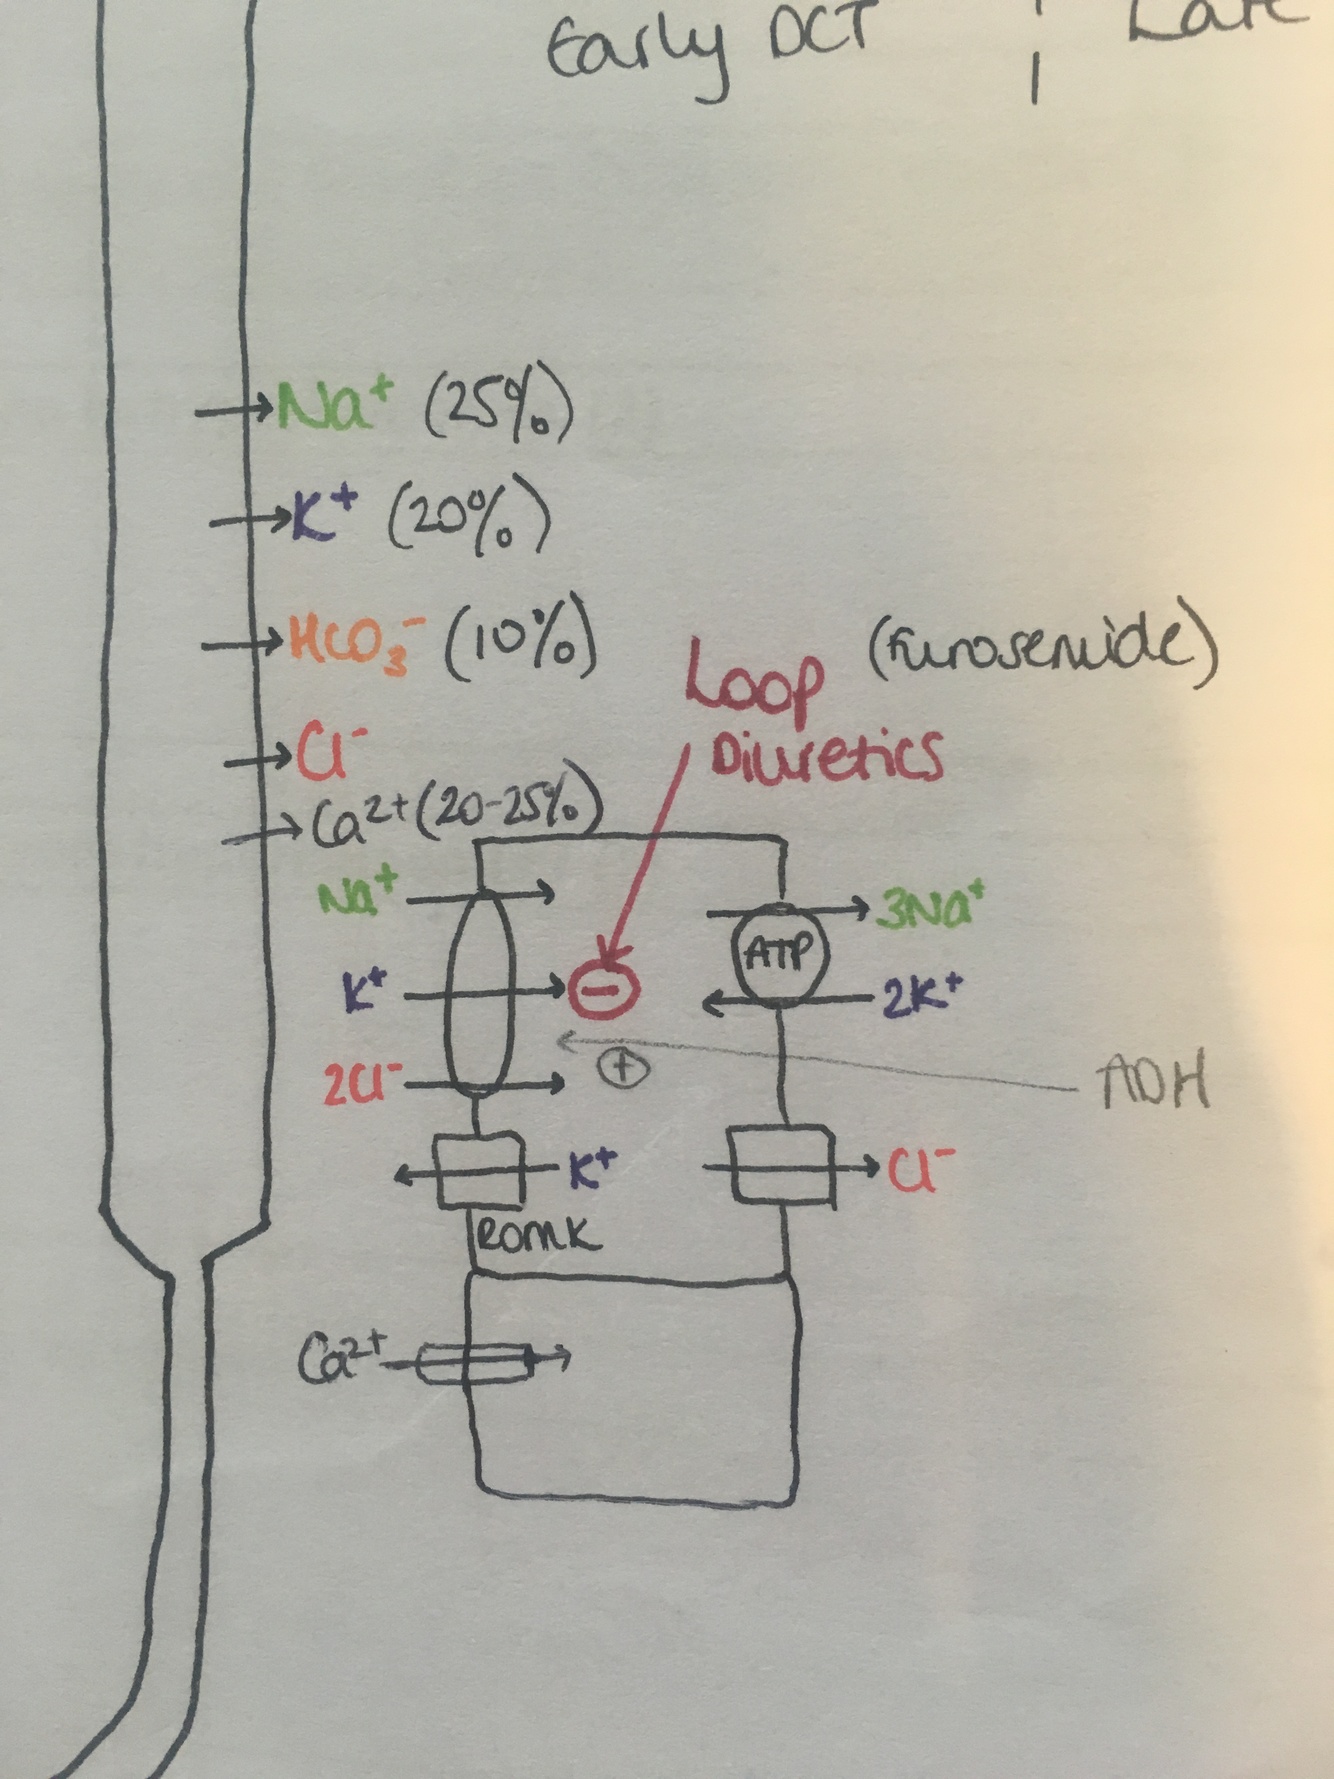 Early DCT
Late
Na+ (25%)
K+ (20%)
HCO3- (10%)
(furosemide)
Loop
Diuretics
Cl-
Ca2+ (20-25%)
Na+
3Na+
ATP
K+
2K+
2Cl-
+
ADH
K+
Cl-
ROMK
Ca2+